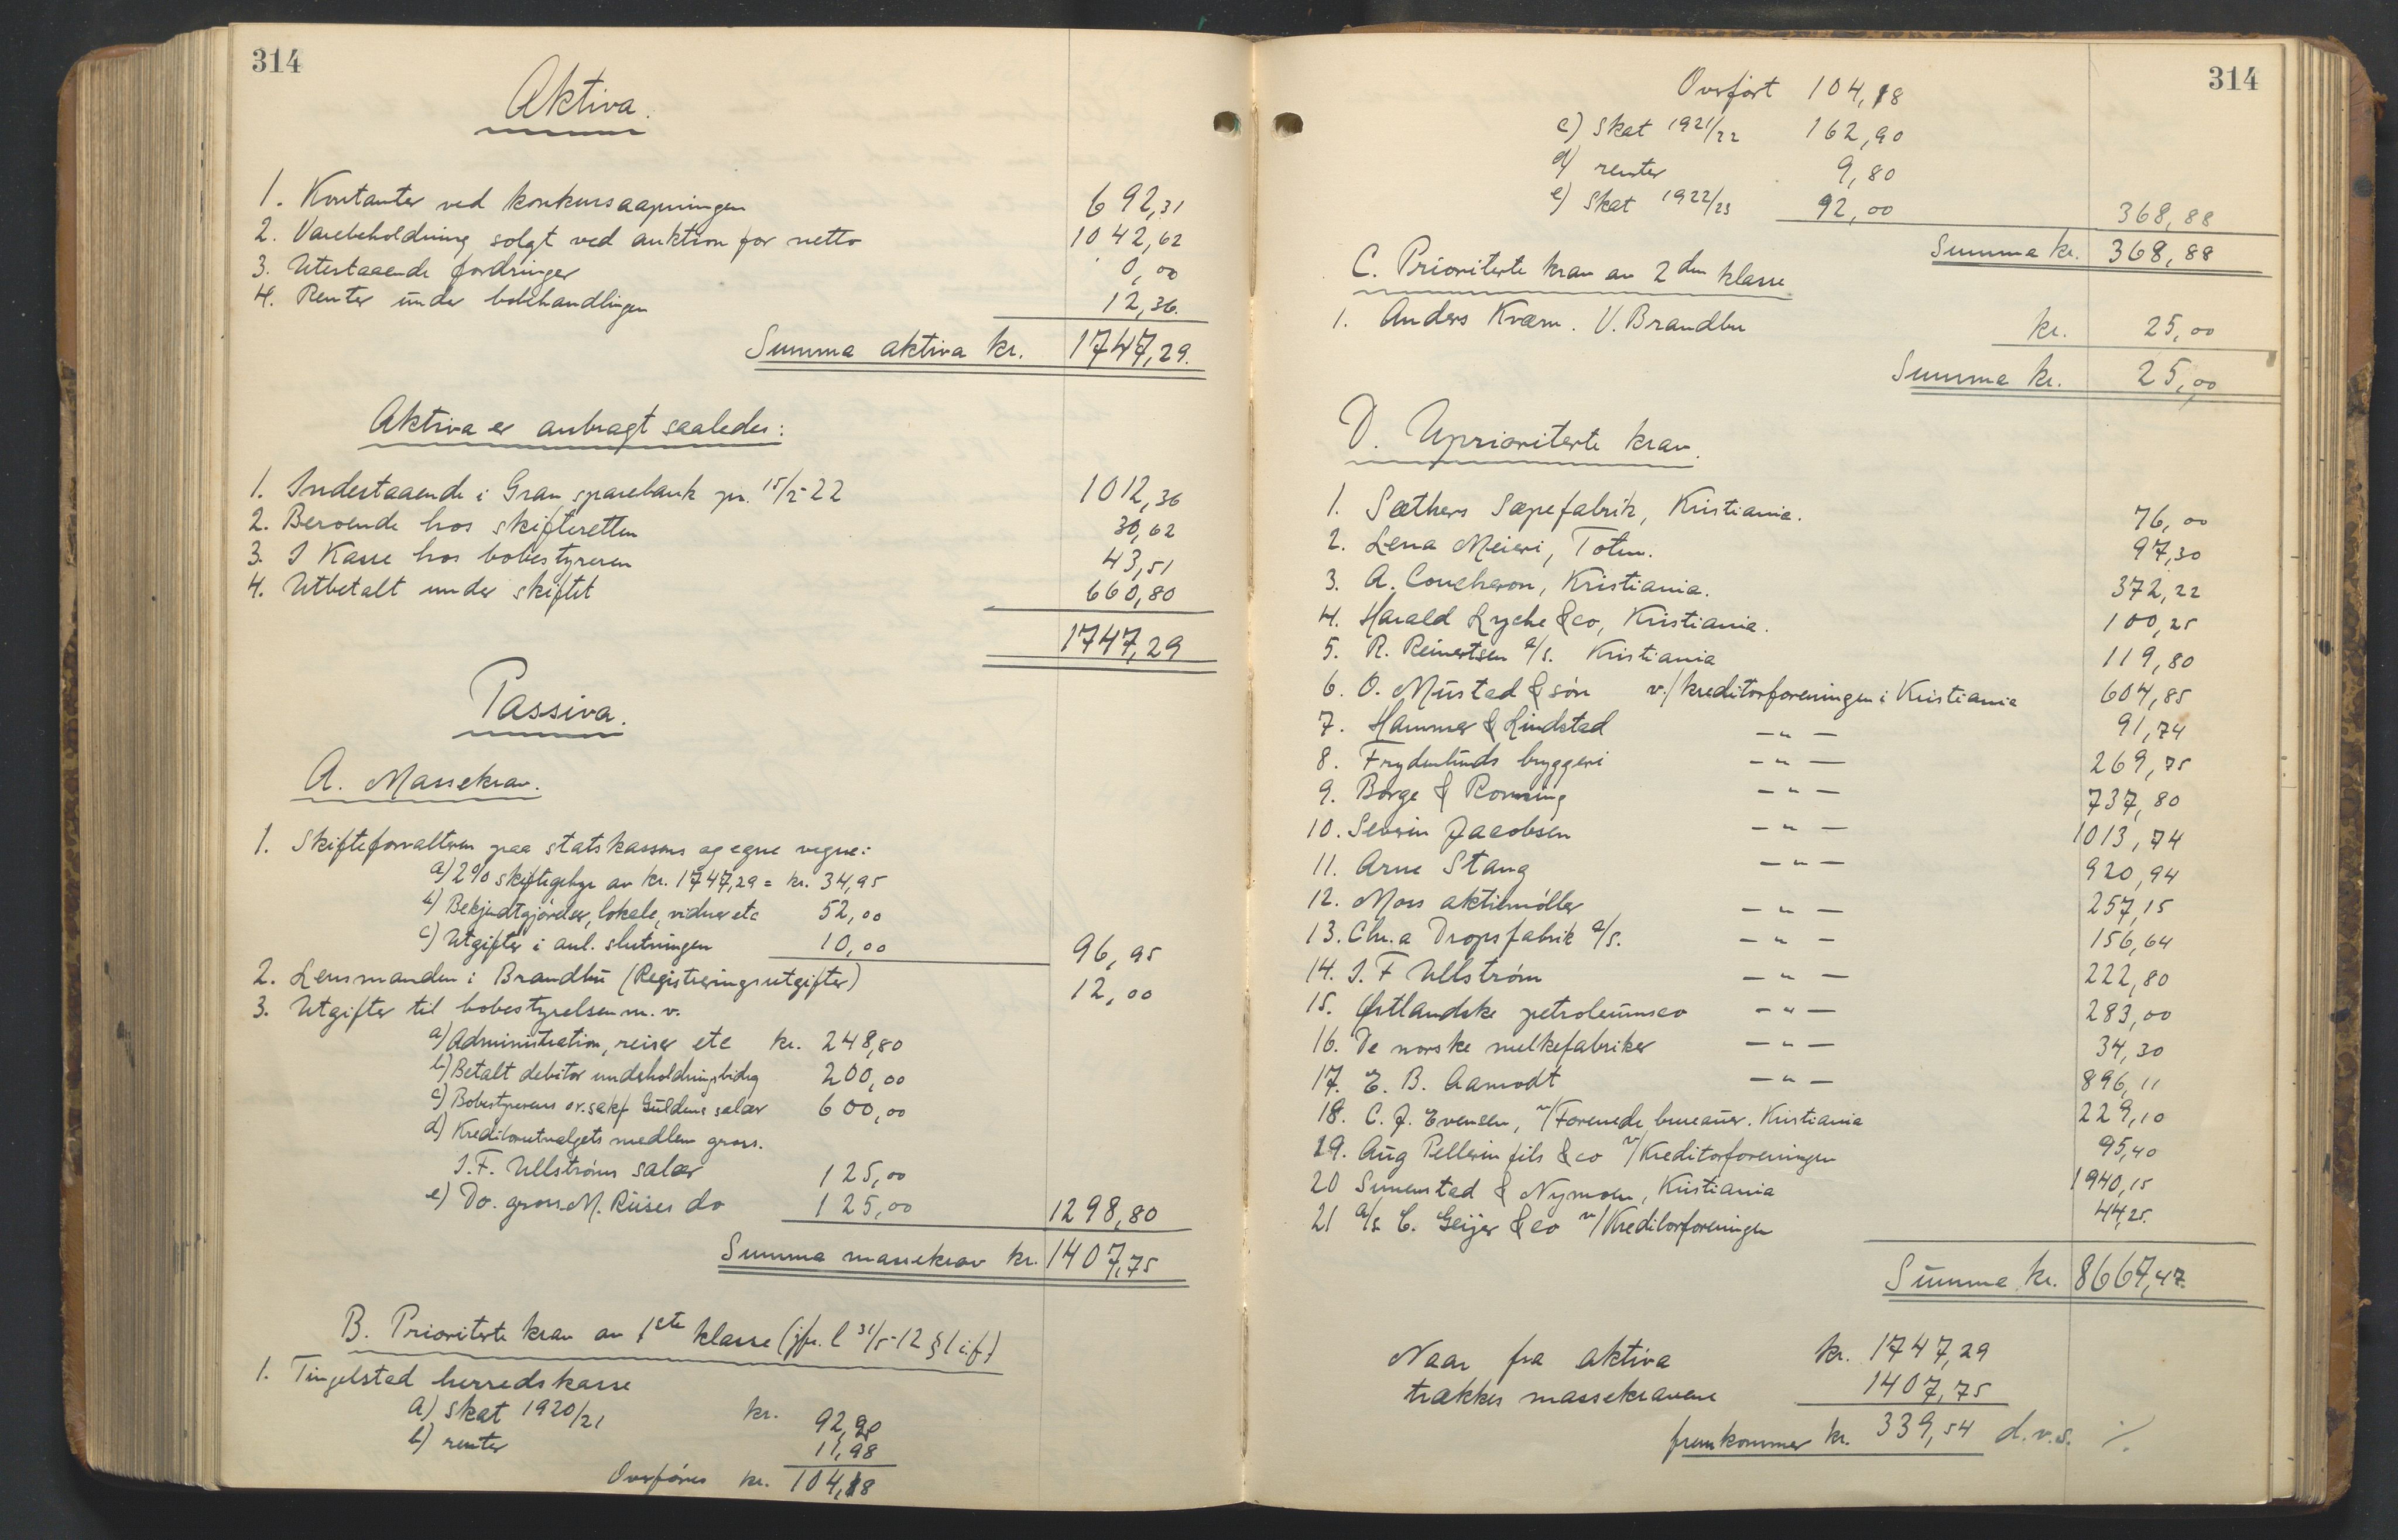 314
Aktiva.
1. Kontanter ved konkursaapningen 692,31
2. Varebeholdning solgt ved auktion for netto 1042,62
3. Utestaaende fordringer 0,00
4. Renter under bobehandlingen 12,36.
Summa aktiva kr. 1747,29.
Aktiva er anbragt saaledes:
1. Indestaaende i Gran sparebank pr. 15/5-22 1012,36
2. Beroende hos skifteretten 30,62
3. I Kasse hos bobestyreren 43,51
4. Utbetalt under skiftet 660,80
1747,29
Passiva.
A. Massekrav.
1. Skifteforvalteren paa statskassens og egne vegne:
a) 2% skiftegebyr av kr. 1747,29 = kr. 34,95
b) Bekjendtgjørelser, lokale, vidner etc 52,00
c) Utgifter i anl. slutningen 10,00 96,95
2. Lensmanden i Brandbu (Registreringsutgifter) 12,00
3. Utgifter til bobestyrelsen m.v.
a) Administration, reiser etc kr. 248,80
b) Betalt debitor underholdningsbidrag 200,00
c) Bobestyrerens or.sakf Guldens salær 600,00
d) Kreditorutvalgets medlem gross.
J.F. Ullströms salær 125,00
e) Do. gross. M. Riises do 125,00 1298,80
Summa massekrav kr. 1407,75
B. Prioriterte krav av 1ste klasse (jfr. l 31/5-12 § 1 i.f.)
1. Tingelstad herredskasse
a) skat 1920/21 kr. 92,20
b) renter 11,98
Overføres kr. 104,18
314
Overført 104,18
c) skat 1921/22 162,90
d) renter 9,80
e) skat 1922/23 92,00 368,88
Summa kr. 368,88
C. Prioriterte krav av 2den klasse
1. Anders Kværn. V. Brandbu kr. 25,00
Summa kr. 25,00
D. Uprioriterte krav.
1. Sæthers Sæpefabrik, Kristiania. 76,00
2. Lena Meieri, Toten. 97,30
3. A. Coucheron, Kristiania. 372,22
4. Harald Lyche & co, Kristiania. 100,25
5. R. Reinertsen a/s. Kristiania 119,80
6. O. Mustad & søn v./kreditorforeningen i Kristiania 604,85
7. Hammer & Lindstad —"— 91,74
8. Frydenlunds bryggeri —"— 269,75
9. Borge & Rønning —"— 737,80
10. Severin Jacobsen —"— 1013,74
11. Arne Stang —"— 920,94
12. Moss aktiemøller —"— 257,15
13. Chr.a Dropsfabrik a/s. —"— 156,64
14. J. F Ullström —"— 222,80
15. Østlandske petroleumsco —"— 283,00
16. De norske melkefabriker —"— 34,30
17. E. B. Aamodt —"— 896,11
18. C. J. Evensen, v/Forenede bureauer. Kristiania 229,10
19. Aug Pellerin fils & co v/Kreditorforeningen 95,40
20 Simenstad & Nymoen, Kristiania 1940,15
21 a/s C. Geijer & co v/Kreditorforeningen 44,25.
Summa kr. 8667,47.
Naar fra aktiva kr. 1747,29
trækkes massekravene 1407,75
fremkommer kr. 339,54 d.v.s. ·/.